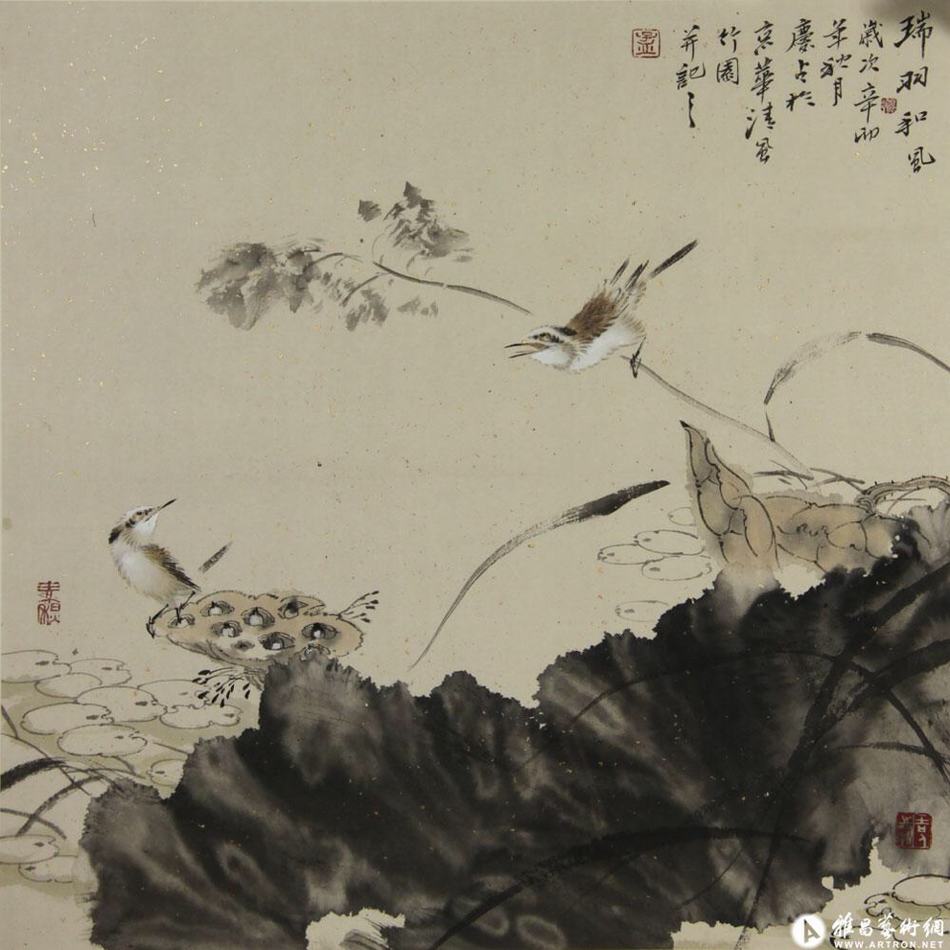 瑞羽和风
岁次辛卯
年秋月
庆占於
京華清風
竹園
并記之
雅昌藝術網
WWW.ARTRON.NET